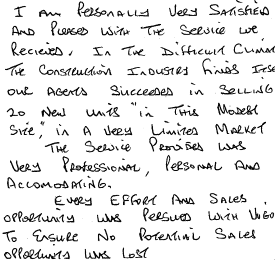 I AM PERSONALLY VERY SATISFIED
AND PLEASED WITH THE SERVICE WE
RECIEVED. IN THE DIFFICULT CLIMA
THE CONSTRUCTION INDUSTRY FINDS ITSE
OUR AGENTS SUCCEEDED IN SELLING
20 NEW UNITS "IN THIS MODEST
SIZE", IN A VERY LIMITED MARKET
THE SERVICE PROVIDED WAS
VERY PROFESSIONAL, PERSONAL AND
ACCOMODATING.
EVERY EFFORT AND SALES
OPPORTUNITY WAS PERSUED WITH VIGO
TO ENSURE NO POTENTIAL SALES
OPPORTUNITY WAS LOST